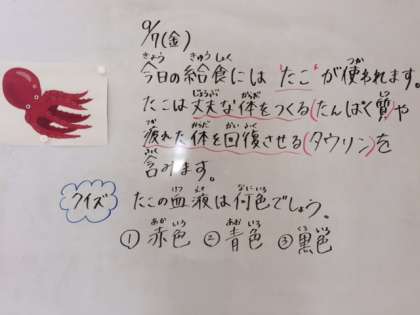 9/7(金)
今日の給食には"たこ"が使われます。
たこは丈夫な体をつくる(たんぱく質)や
疲れた体を回復させる(タウリン)を
含みます。
クイズ たこの血液は何色でしょう。
①赤色 ②青色 ③黒色